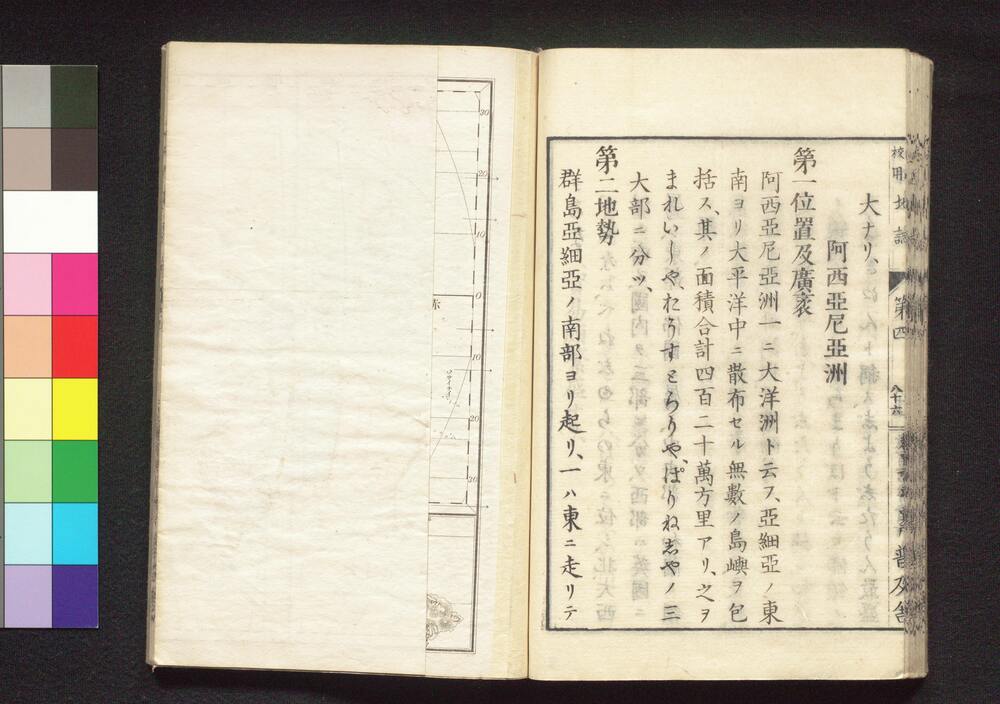 校用地誌 第四 八十六 普及舎
大ナリ、
阿西亞尼亞洲
第一位置及廣袤
阿西亞尼亞洲一ニ大洋洲ト云フ、亞細亞ノ東
南ヨリ大平洋中ニ散布セル無數ノ島嶼ヲ包
括ス、其ノ面積合計四百二十萬方里アリ、之ヲ
まれいしや、たうすとらりや、ぽりねしやノ三
大部ニ分ツ、
第二地勢
群島亞細亞ノ南部ヨリ起リ、一ハ東ニ走リテ
30
20
10
0
赤
10
20
30